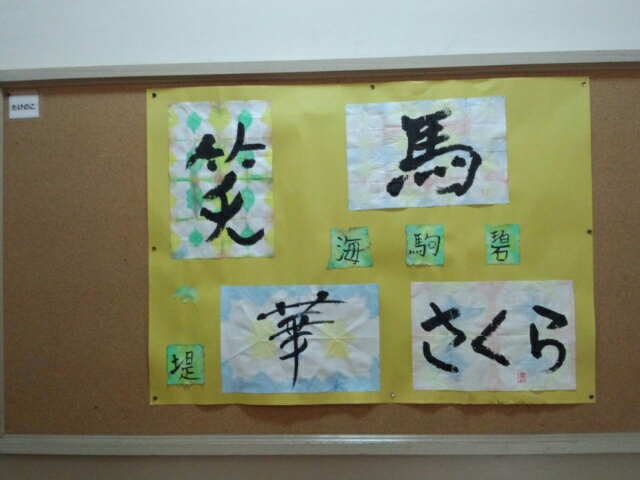 たけのこ
笑
馬
海
駒
碧
堤
華
さくら